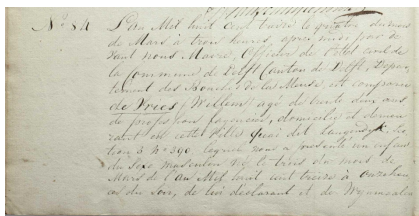 No. 84 L'an Mil huit cent treize le quatorze du mois
de Mars à trois heures, après midi par de
vant nous Maire, Officier de l'Etat civil de
la Commune de Delft Canton de Delft, Depar-
tement des Bouches de la Meuse, est comparu
de Vries (Willem) agé de trente deux ans
de profession, domicilié et demeu
rant en cette Ville quai dit Langendijk Sec
tion 3 No. 390, lequel nous a présenté un enfant
du sexe masculin né le treize du mois de
Mars de l'an Mil huit cent treize à onze heu
res du soir, de lui déclarant et de